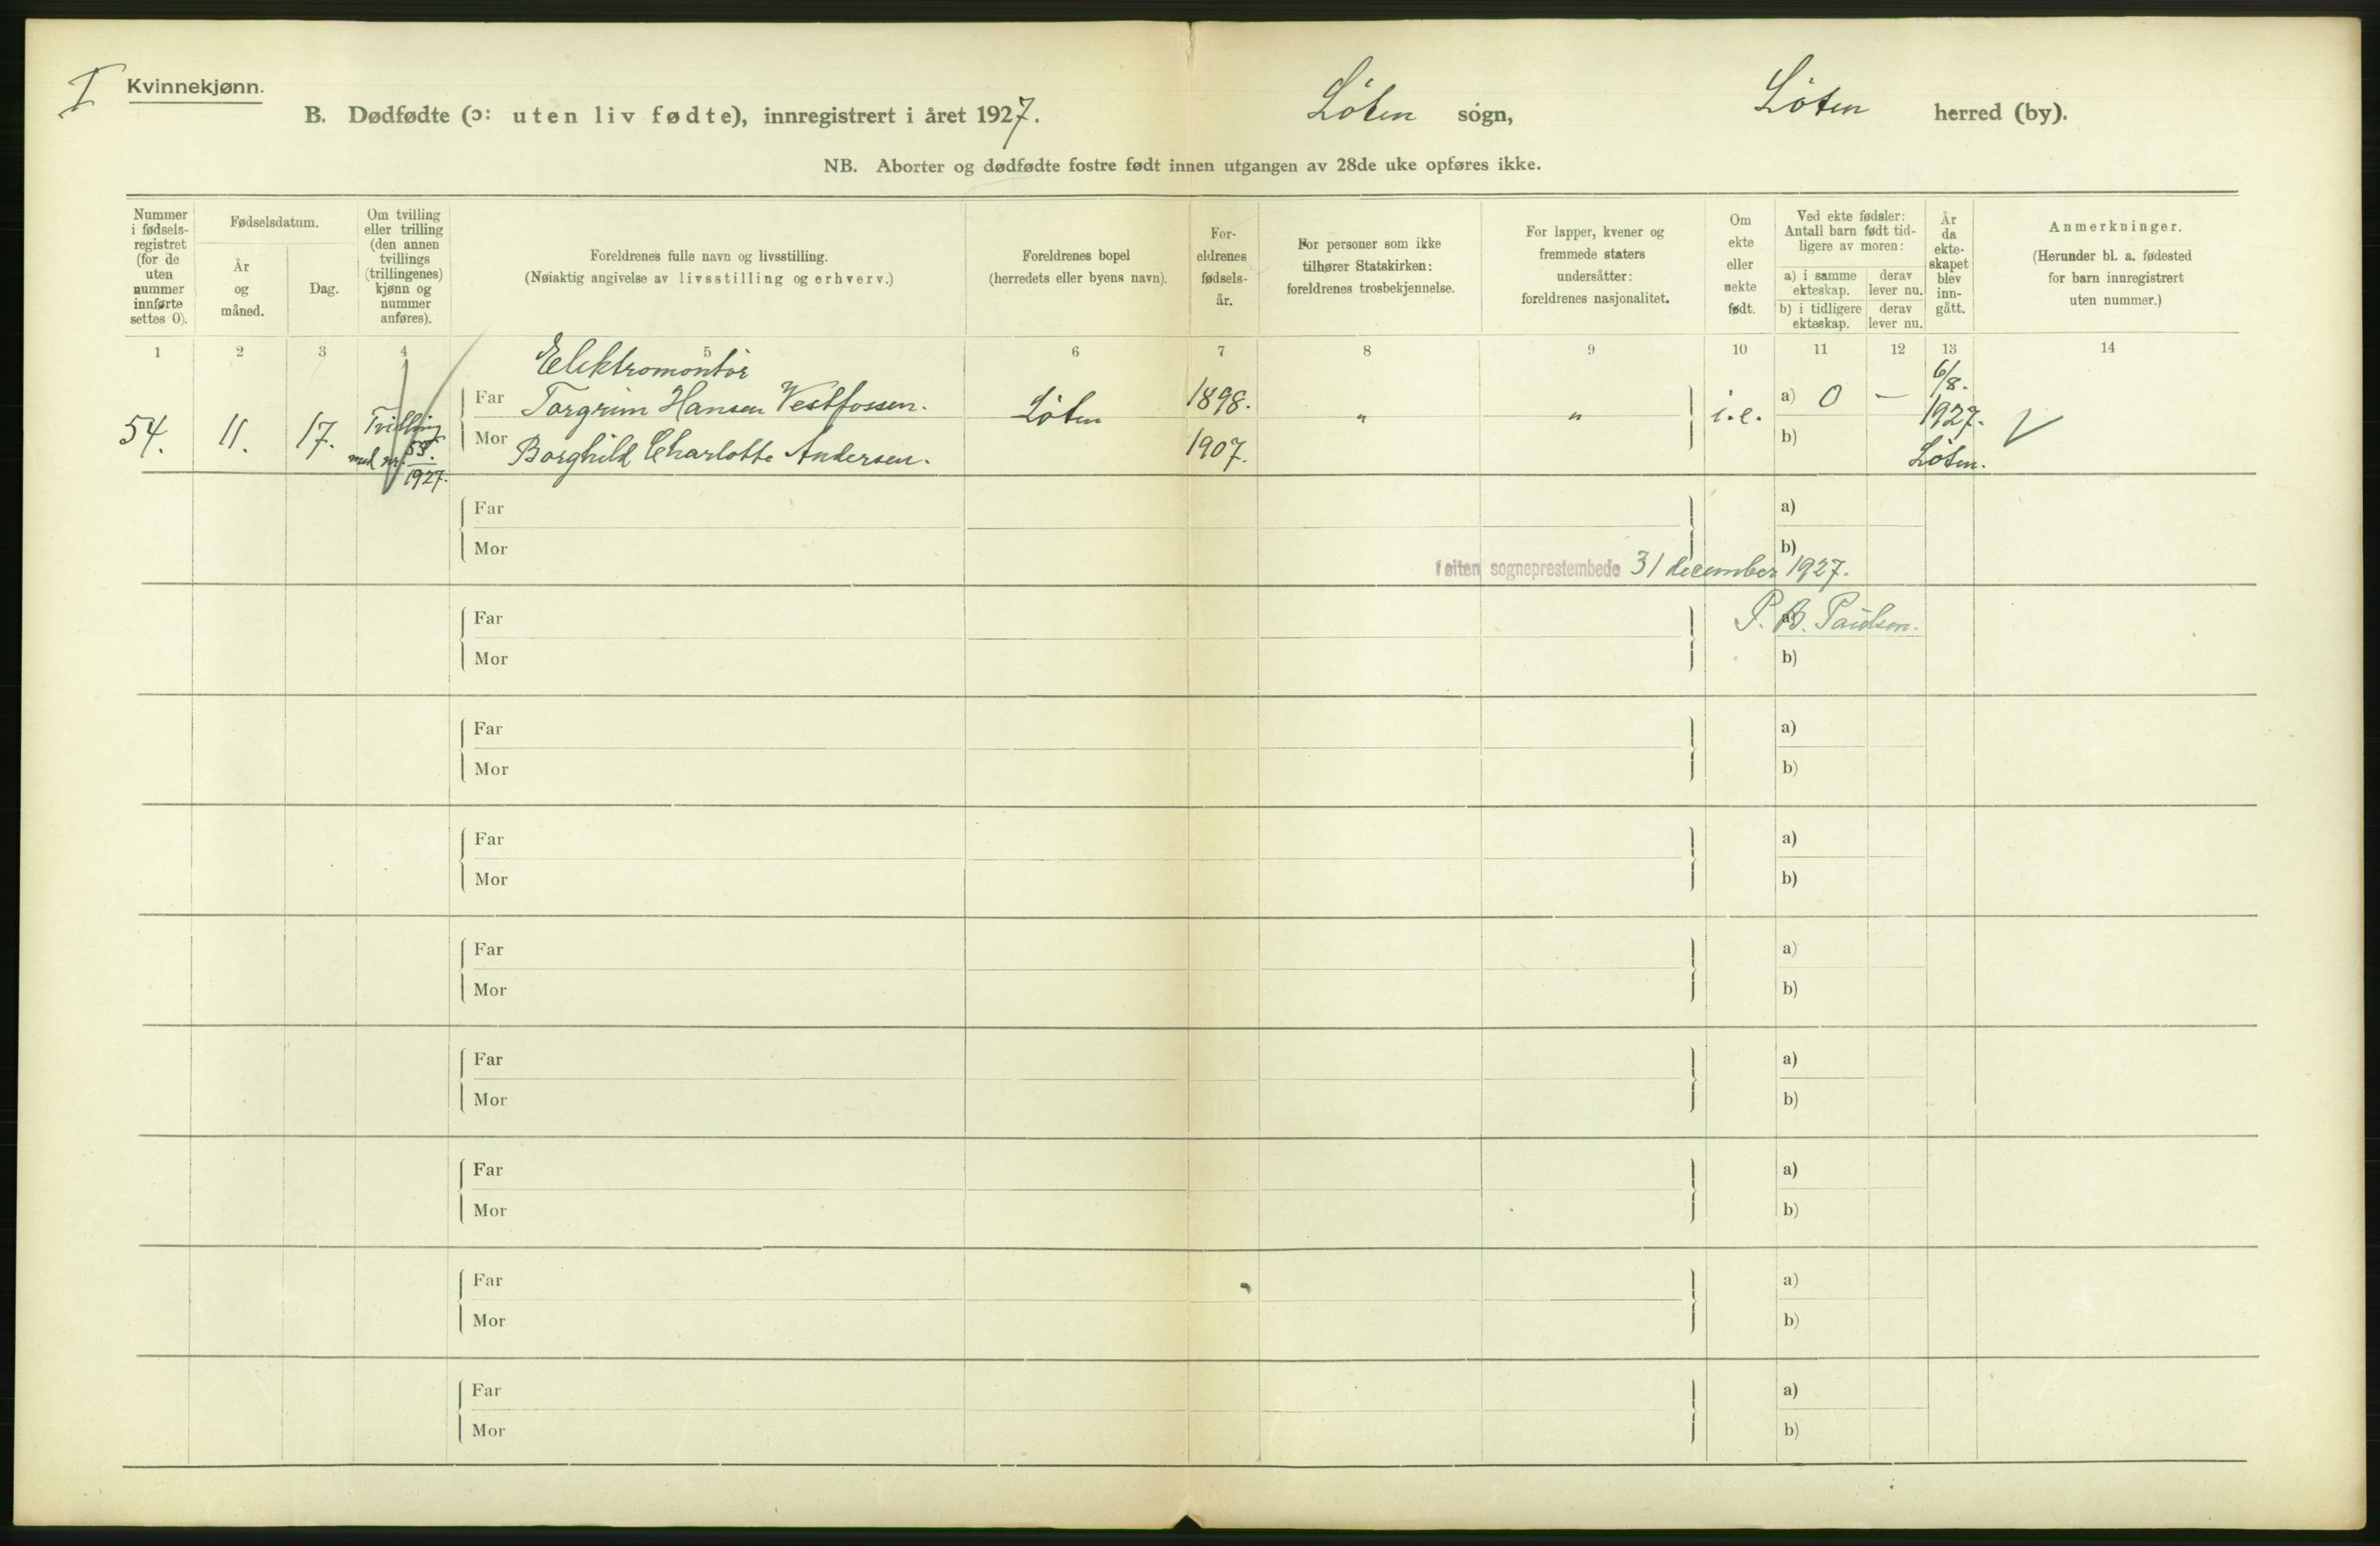 I Kvinnekjønn.
B. Dødfødte (ɔ: uten liv fødte), innregistrert i året 1927. Løten sogn, Løten herred (by).
NB. Aborter og dødfødte fostre født innen utgangen av 28de uke opføres ikke.
Nummer
i fødsels-
registret
(for de
uten
nummer
innførte
settes 0).
Fødselsdatum.
År
og
måned.
Dag.
Om tvilling
eller trilling
(den annen
tvillings
(trillingenes)
kjønn og
nummer
anføres).
Foreldrenes fulle navn og livsstilling.
(Nøiaktig angivelse av livsstilling og erhverv.)
Foreldrenes bopel
(herredets eller byens navn).
For-
eldrenes
fødsels-
år.
For personer som ikke
tilhører Statskirken:
foreldrenes trosbekjennelse.
For lapper, kvener og
fremmede staters
undersåtter:
foreldrenes nasjonalitet.
Om
ekte
eller
uekte
født.
Ved ekte fødsler:
Antall barn født tid-
ligere av moren:
a) i samme
ekteskap.
derav
lever nu.
b) i tidligere
ekteskap.
derav
lever nu.
År
da
ekte-
skapet
blev
inn-
gått.
Anmerkninger.
(Herunder bl. a. fødested
for barn innregistrert
uten nummer.)
1 2 3 4 5 6 7 8 9 10 11 12 13 14
Elektromontør
54. 11. 17. Tvilling
med nr. 55.
1927.
Far Torgrim Hansen Vestfossen. Løten 1898. „ „ i.e. a) 0 — 6/8.
1927.
Løten.
Mor Borghild Charlotte Andersen. 1907. b)
Far a)
Mor b)
Løiten sogneprestembede 31 december 1927.
P. B. Paulsen.
Far a)
Mor b)
Far a)
Mor b)
Far a)
Mor b)
Far a)
Mor b)
Far a)
Mor b)
Far a)
Mor b)
Far a)
Mor b)
Far a)
Mor b)